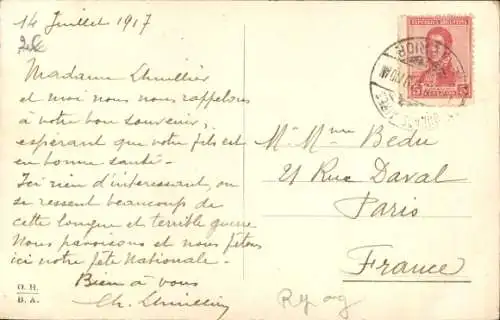 14 Juillet 1917
Madame Lhuillier
et moi nous nous rappelons
à votre bon souvenir,
espérant que votre fils est
en bonne santé -
Ici rien d'interessant, on
se ressent beaucoup de
cette longue et terrible guerre
Nous pavoisons et nous fêtons
ici notre fête Nationale -
Bien à vous
Ch. Lhuillier
O. H.
B. A.
M. Mme Bedu
21 Rue Daval
Paris
France
REPUBLICA ARGENTINA
5 5